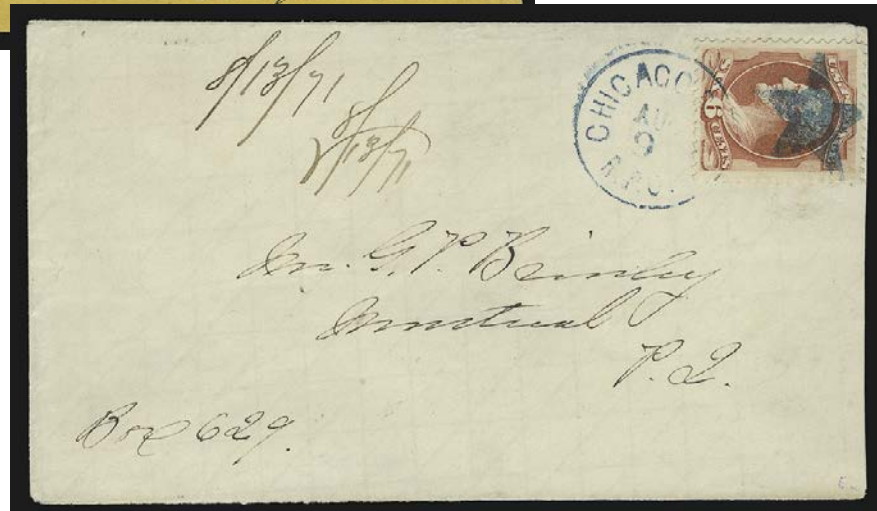 8/13/71
8/13/71
CHICAGO
AU
R.P.O.
6 CENTS
Mr. G. P. Brinley
Montreal
P. Q.
Box 629.